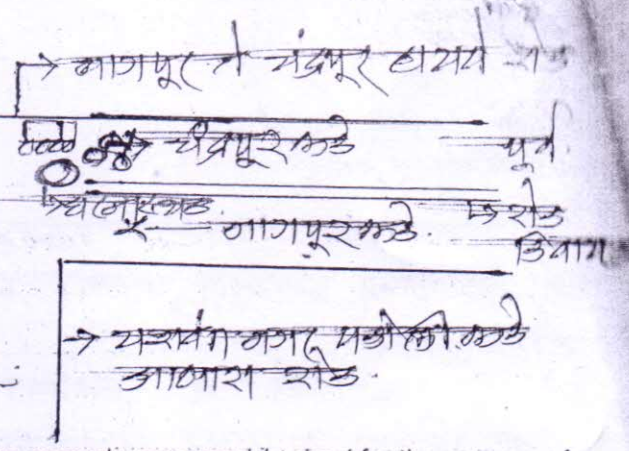 → नागपूर ते चंद्रपूर हायवे रोड
→ चंद्रपूरकडे पूर्व
→ घटनास्थळ
← नागपूरकडे. रोड
डिवाय
→ यशवंत नगर पडोलीकडे
जाणारा रोड.